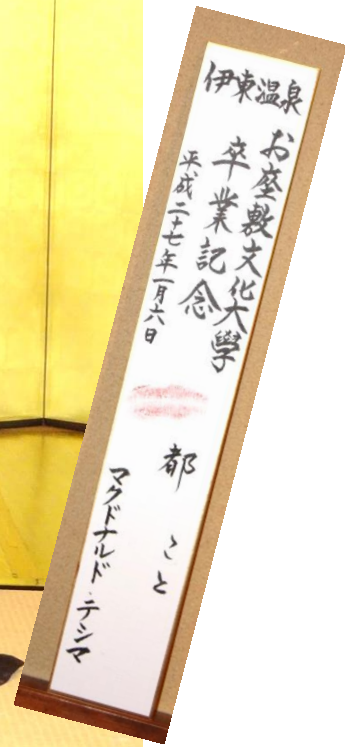 伊東温泉
お座敷文化大學
卒業記念
平成二十七年一月六日
都 こと
マクドナルド・テシマ